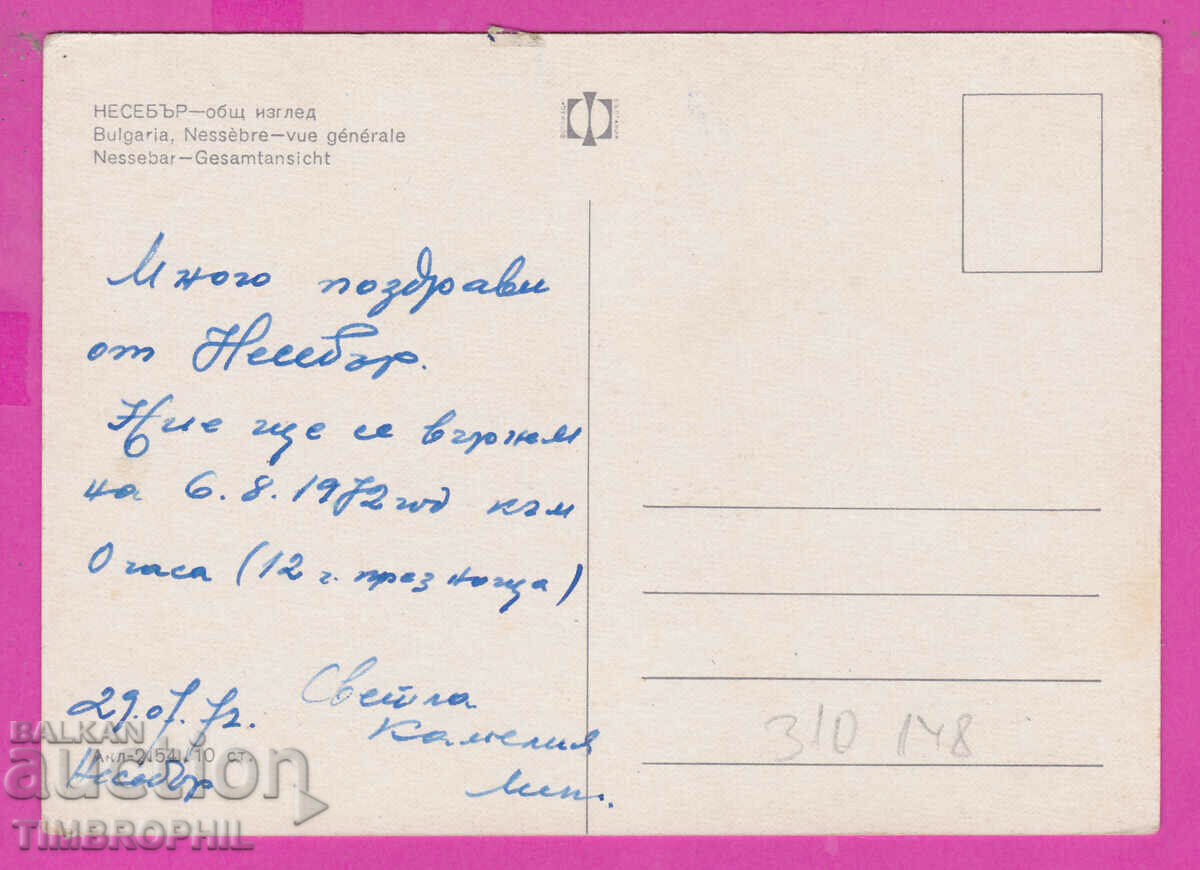 НЕСЕБЪР—общ изглед
Bulgaria, Nessèbre—vue générale
Nessebar—Gesamtansicht
Много поздрави
от Несебър.
Ние ще се върнем
на 6.8.1972 год към
0 часа (12 ч. през нощта)
29.07.72.
Несебър
Светла
Камелия
310 148
Акл-2154 10 ст.
BALKAN
auction
TIMBROPHIL